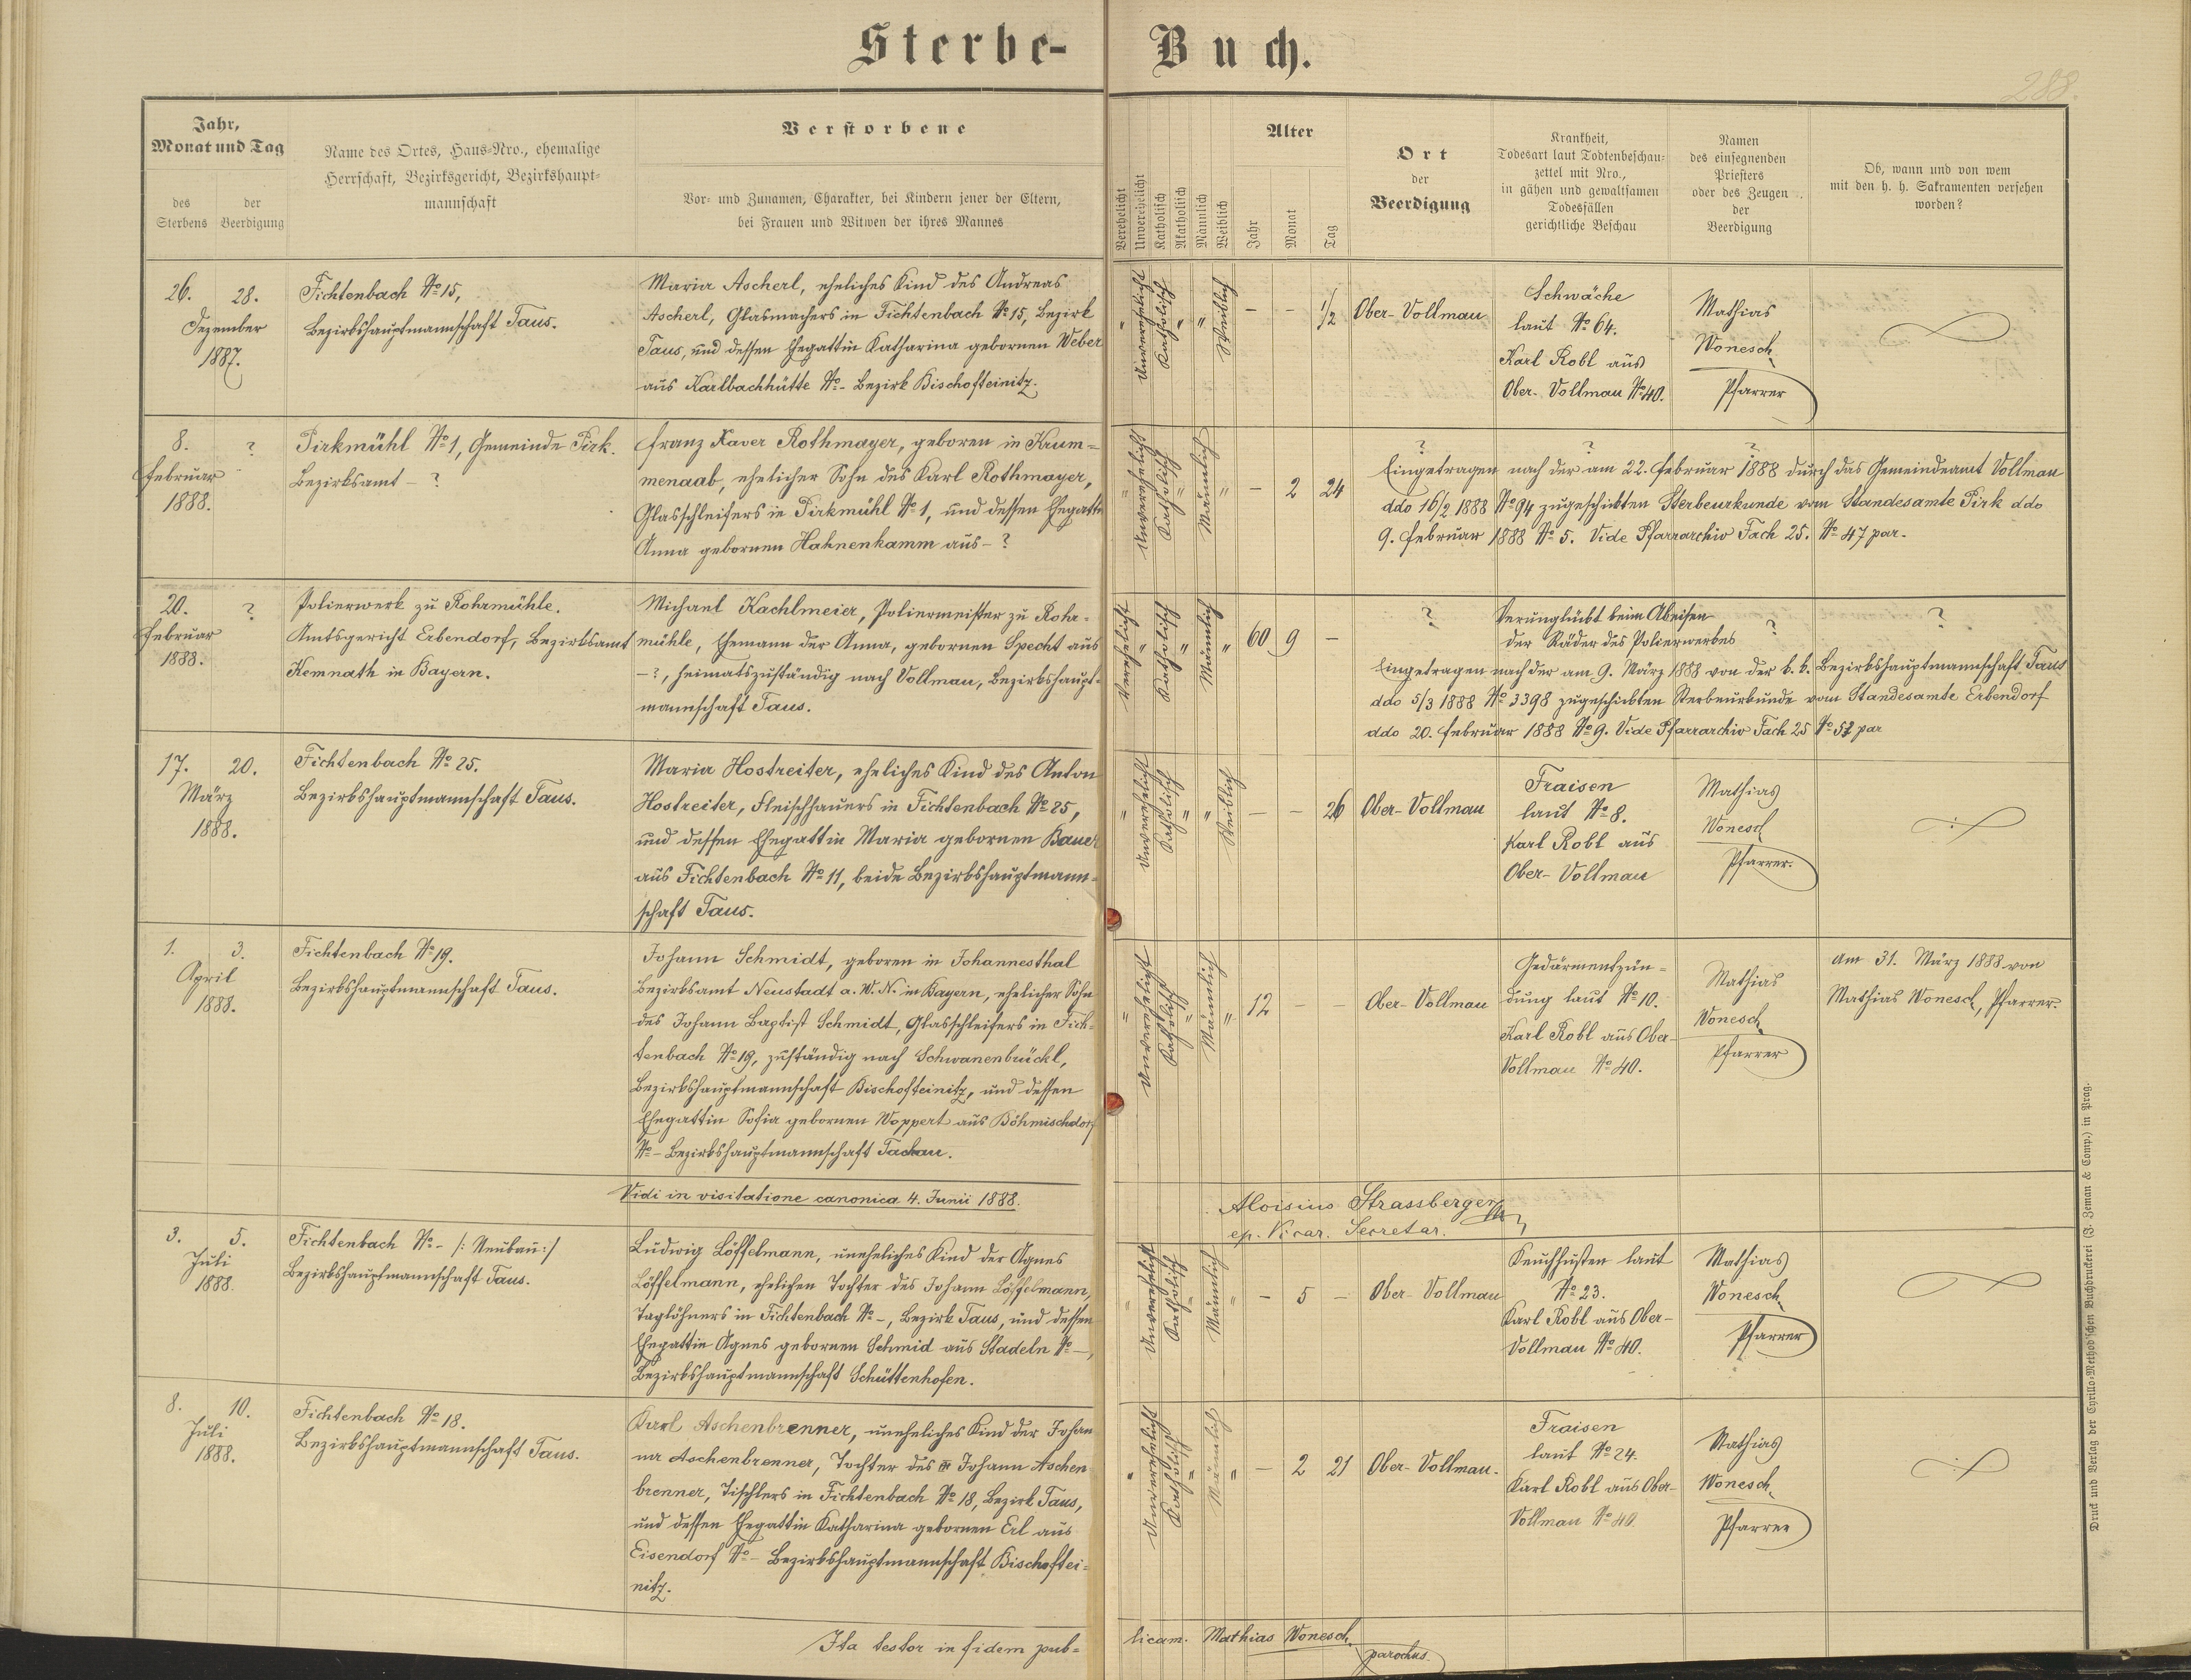 Sterbe-Buch.
288.
Jahr,
Monat und Tag
des Sterbens
der Beerdigung
Name des Ortes, Haus-Nro., ehemalige
Herrschaft, Bezirksgericht, Bezirkshaupt-
mannschaft
Verstorbene
Vor- und Zunamen, Charakter, bei Kindern jener der Eltern,
bei Frauen und Witwen der ihres Mannes
Verehelicht
Unverehelicht
Katholisch
Akatholisch
Männlich
Weiblich
Alter
Jahr
Monat
Tag
Ort
der
Beerdigung
Krankheit,
Todesart laut Todtenbeschau-
zettel mit Nro.,
in gähen und gewaltsamen
Todesfällen
gerichtliche Beschau
Namen
des einsegnenden
Priesters
oder des Zeugen
der
Beerdigung
Ob, wann und von wem
mit den h. h. Sakramenten versehen
worden?
26. 28.
Dezember
1887.
Fichtenbach No 15,
Bezirkshauptmannschaft Taus.
Maria Ascherl, eheliches Kind des Andreas
Ascherl, Glasmachers in Fichtenbach No 15, Bezirk
Taus, und dessen Ehegattin Katharina gebornen Weber
aus Karlbachhütte No - Bezirk Bischofteinitz.
" Unverehelicht Katholisch " " Weiblich - - 1/2
Ober-Vollmau
Schwäche
laut No 64.
Karl Robl aus
Ober-Vollmau No 40.
Mathias
Wonesch
Pfarrer
8. ?
Februar
1888.
Pirkmühl No 1, Gemeinde Pirk.
Bezirksamt - ?
Franz Xaver Rothmayer, geboren in Krum=
menaab, ehelicher Sohn des Karl Rothmayer,
Glasschleifers in Pirkmühl No 1, und dessen Ehegattin
Anna gebornen Hahnenkamm aus - ?
" Unverehelicht Katholisch " Männlich " - 2 24
? ? ?
Eingetragen nach der am 22. Februar 1888 durch das Gemeindeamt Vollmau
ddo 16/2 1888 No 94 zugeschickten Sterbeurkunde vom Standesamte Pirk ddo
9. Februar 1888 No 5. Vide Pfarrarchiv Fach 25. No 47 par.
20. ?
Februar
1888.
Polierwerk zu Rohrmühle.
Amtsgericht Erbendorf, Bezirksamt
Kemnath in Bayern.
Michael Kachlmeier, Poliermeister zu Rohr-
mühle, Ehemann der Anna, gebornen Specht aus
- ?, heimatszuständig nach Vollmau, Bezirkshaupt-
mannschaft Taus.
Verehelicht " Katholisch " Männlich " 60 9 -
?
Verunglückt beim Abeisen
der Räder des Polierwerkes
? ?
Eingetragen nach der am 9. März 1888 von der k. k. Bezirkshauptmannschaft Taus
ddo 5/3 1888 No 3398 zugeschickten Sterbeurkunde vom Standesamte Erbendorf
ddo 20. Februar 1888 No 9. Vide Pfarrarchiv Fach 25 No 52 par
17. 20.
März
1888.
Fichtenbach No 25.
Bezirkshauptmannschaft Taus.
Maria Hostreiter, eheliches Kind des Anton
Hostreiter, Fleischhauers in Fichtenbach No 25,
und dessen Ehegattin Maria gebornen Bauer
aus Fichtenbach No 11, beide Bezirkshauptmann-
schaft Taus.
" Unverehelicht Katholisch " " Weiblich - - 26
Ober-Vollmau
Fraisen
laut No 8.
Karl Robl aus
Ober-Vollmau
Mathias
Wonesch
Pfarrer.
1. 3.
April
1888.
Fichtenbach No 19.
Bezirkshauptmannschaft Taus.
Johann Schmidt, geboren in Johannesthal
Bezirksamt Neustadt a. W. N. in Bayern, ehelicher Sohn
des Johann Baptist Schmidt, Glasschleifers in Fich-
tenbach No 19, zuständig nach Schwanenbrückl,
Bezirkshauptmannschaft Bischofteinitz, und dessen
Ehegattin Sofia gebornen Woppert aus Böhmischdorf
No - Bezirkshauptmannschaft Tachau.
" Unverehelicht Katholisch " Männlich " 12 - -
Ober-Vollmau
Gedärmentzün=
dung laut No 10.
Karl Robl aus Ober-
Vollmau No 40.
Mathias
Wonesch
Pfarrer
am 31. März 1888 von
Mathias Wonesch, Pfarrer.
Vidi in visitatione canonica 4. Junii 1888.
Aloisius Strassberger
ep. Vicar. Secretar.
3. 5.
Juli
1888.
Fichtenbach No - /: Neubau :/
Bezirkshauptmannschaft Taus.
Ludwig Löffelmann, uneheliches Kind der Agnes
Löffelmann, ehelichen Tochter des Johann Löffelmann,
Taglöhners in Fichtenbach No -, Bezirk Taus, und dessen
Ehegattin Agnes gebornen Schmid aus Stadeln No -,
Bezirkshauptmannschaft Schüttenhofen.
" Unverehelicht Katholisch " Männlich " - 5 -
Ober-Vollmau
Keuchhusten laut
No 23.
Karl Robl aus Ober-
Vollmau No 40.
Mathias
Wonesch
Pfarrer
8. 10.
Juli
1888.
Fichtenbach No 18.
Bezirkshauptmannschaft Taus.
Karl Aschenbrenner, uneheliches Kind der Johan
na Aschenbrenner, Tochter des Johann Aschen
brenner, Tischlers in Fichtenbach No 18, Bezirk Taus,
und dessen Ehegattin Katharina gebornen Erl aus
Eisendorf No - Bezirkshauptmannschaft Bischoftei=
nitz.
" Unverehelicht Katholisch " Männlich " - 2 21
Ober-Vollmau.
Fraisen
laut No 24.
Karl Robl aus Ober-
Vollmau No 40.
Mathias
Wonesch
Pfarrer
Ita testor in fidem pub=
licam. Mathias Wonesch
parochus.
Druck und Verlag der Cyrillo-Method'schen Buchdruckerei (J. Zeman & Comp.) in Prag.